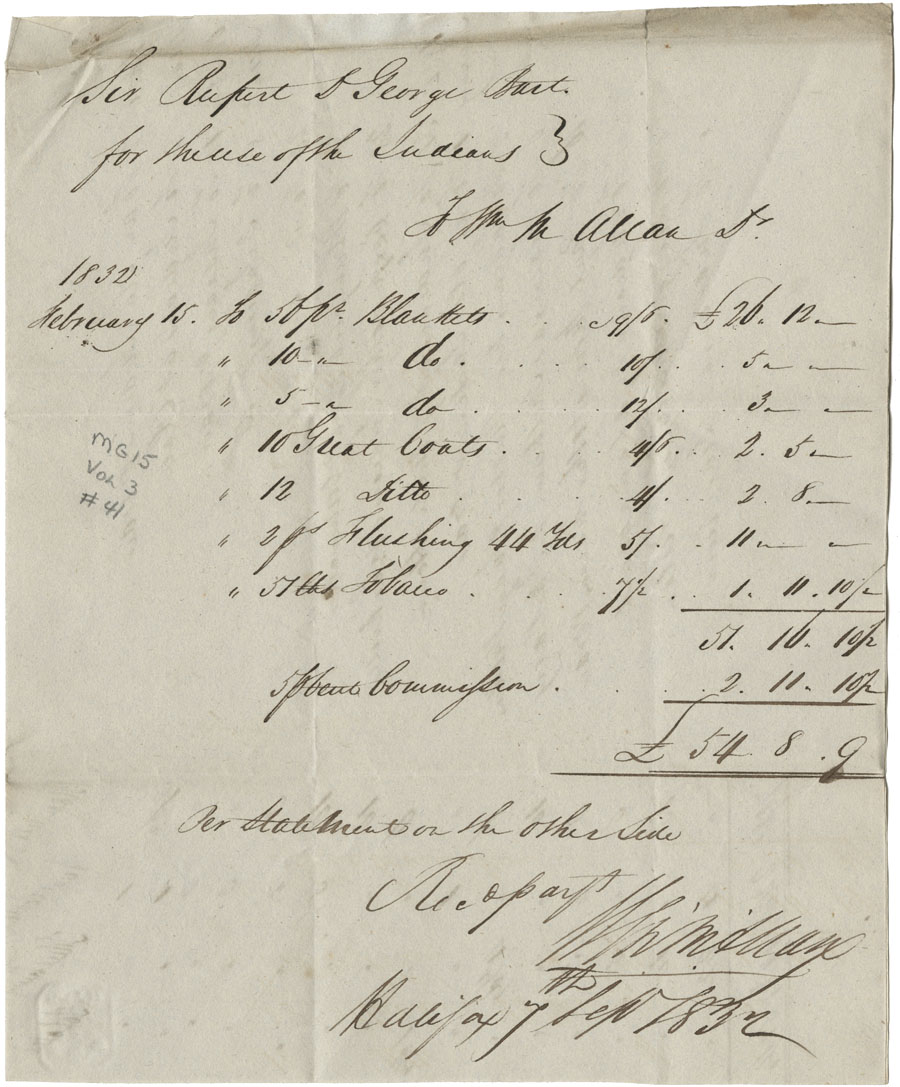 Sir Rupert D George Bart.
for the use of the Indians }
To Wm M Allan Dr.
1832
February 15. To 56 pr. Blankets . . . 9/6 . £ 26 . 12 . —
" 10 — " do . . . . 10/ . . 5 " — —
" 5 — " do . . . . 12/ . . 3 " — —
" 10 Great Coats . . . . 4/6 . . 2 . 5 " —
" 12 Ditto . . . . 4/ . . 2 . 8 . —
" 2 ps Flushing 44 Yds 5/ . . 11 " — —
" 51 lbs Tobacco . . . . 7½ . . 1 . 11 . 10½
51 . 16 . 10½
5 pCent Commission . . . . . 2 . 11 . 10½
£ 54 . 8 . 9
Per Statement on the other Side
Rec'd paymt
Wm M Allan
Halifax 7th Sept 1832
MG15
Vol 3
#41